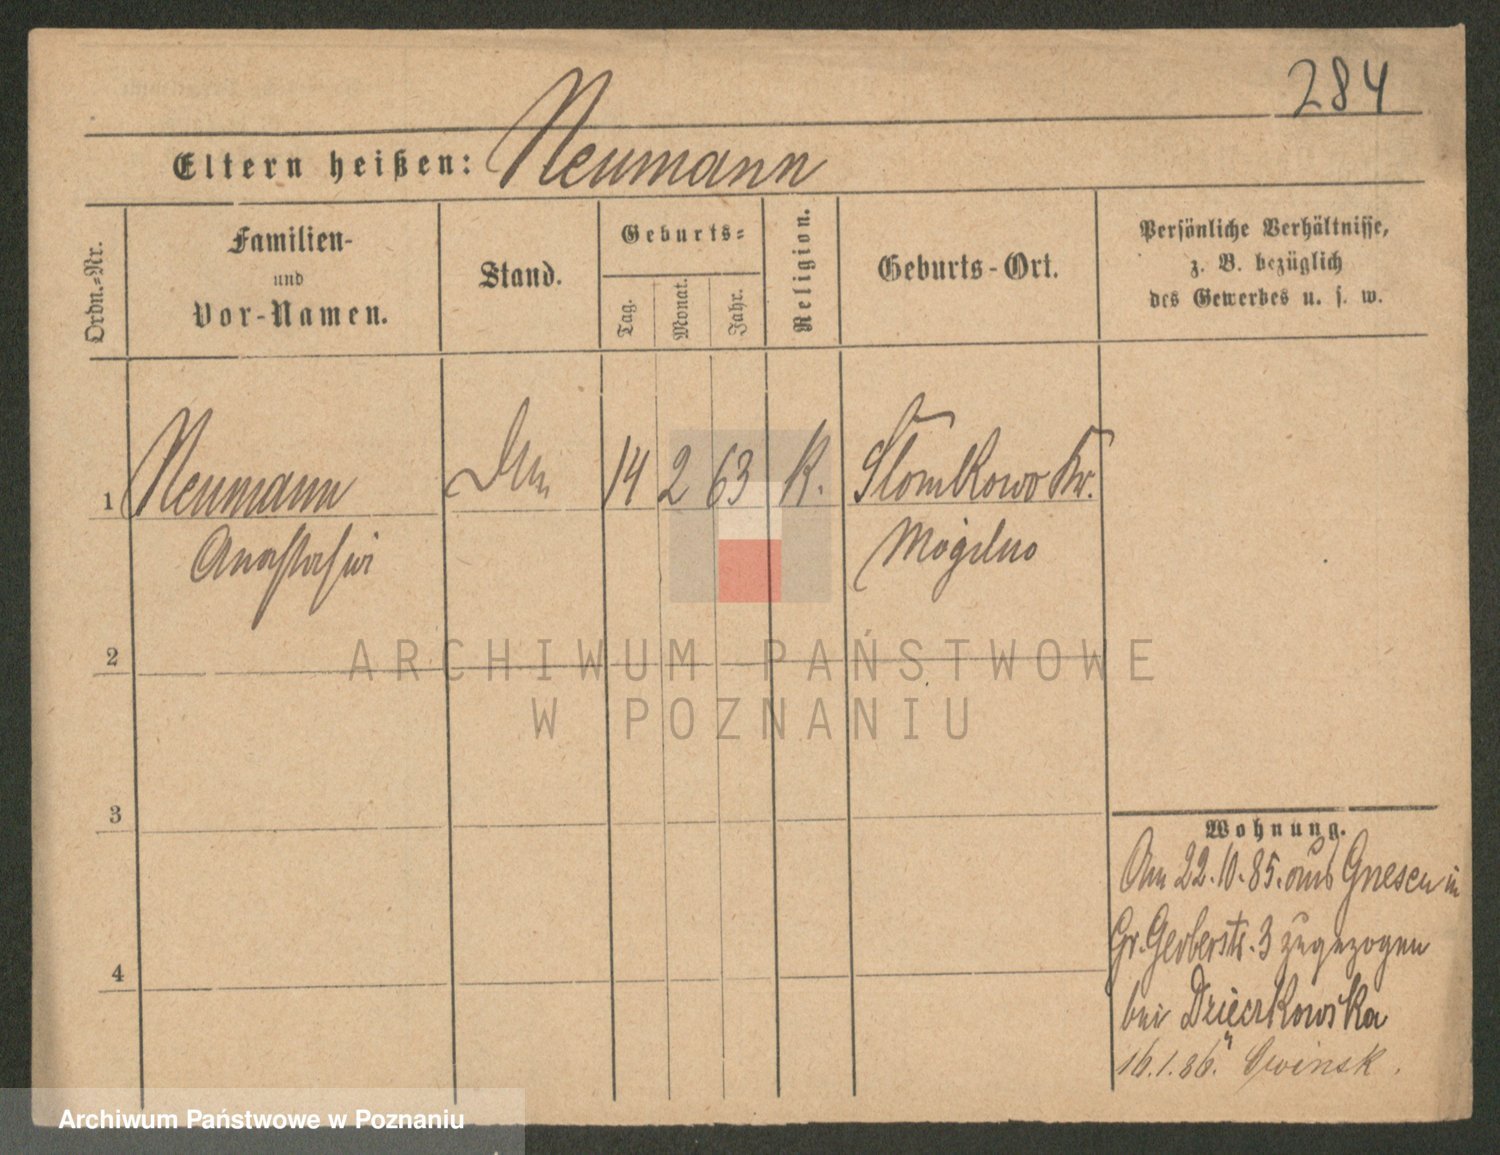 284
Eltern heißen: Neumann
Ordn.-Nr.
Familien-
und
Vor-Namen.
Stand.
Geburts-
Tag.
Monat.
Jahr.
Religion.
Geburts-Ort.
Persönliche Verhältnisse,
z. B. bezüglich
des Gewerbes u. s. w.
1 Neumann 14 2 63 K. Slomkowo Kr.
Anastasia Mogilno
2
3
4
Wohnung.
Am 22.10.85. aus Gnesen in
Gr. Gerberstr. 3 zugezogen
bei Dzieczkowska
16.1.86. Owinsk.
ARCHIWUM PAŃSTWOWE
W POZNANIU
Archiwum Państwowe w Poznaniu